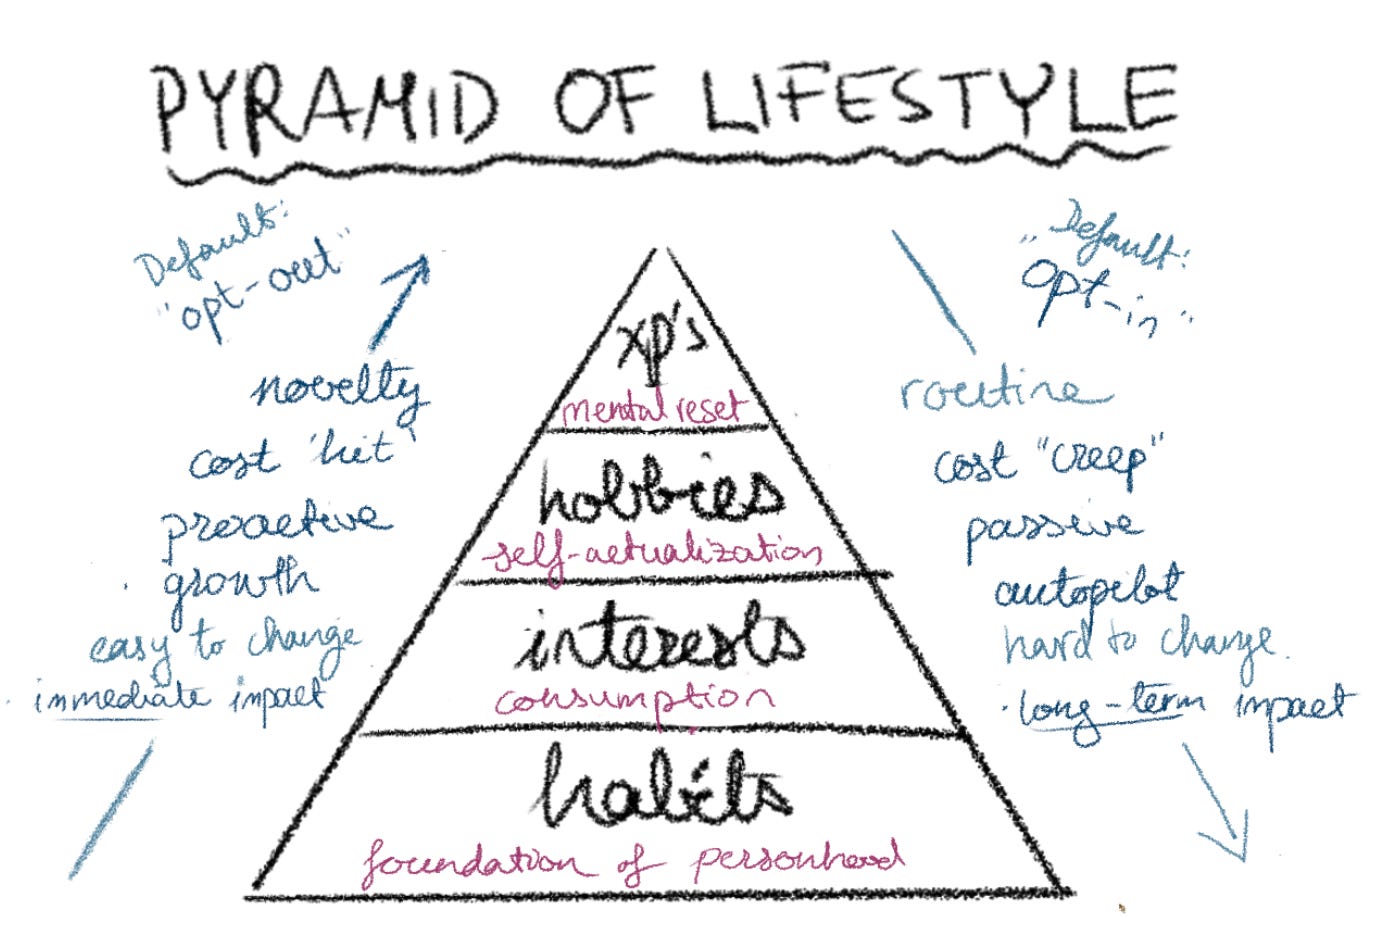 PYRAMID OF LIFESTYLE
Default:
"opt-out"
novelty
cost 'hit'
proactive
growth
easy to change
immediate impact
xp's
mental reset
hobbies
self-actualization
interests
consumption
habits
foundation of personhood
"Default:
opt-in"
routine
cost "creep"
passive
autopilot
hard to change.
long-term impact